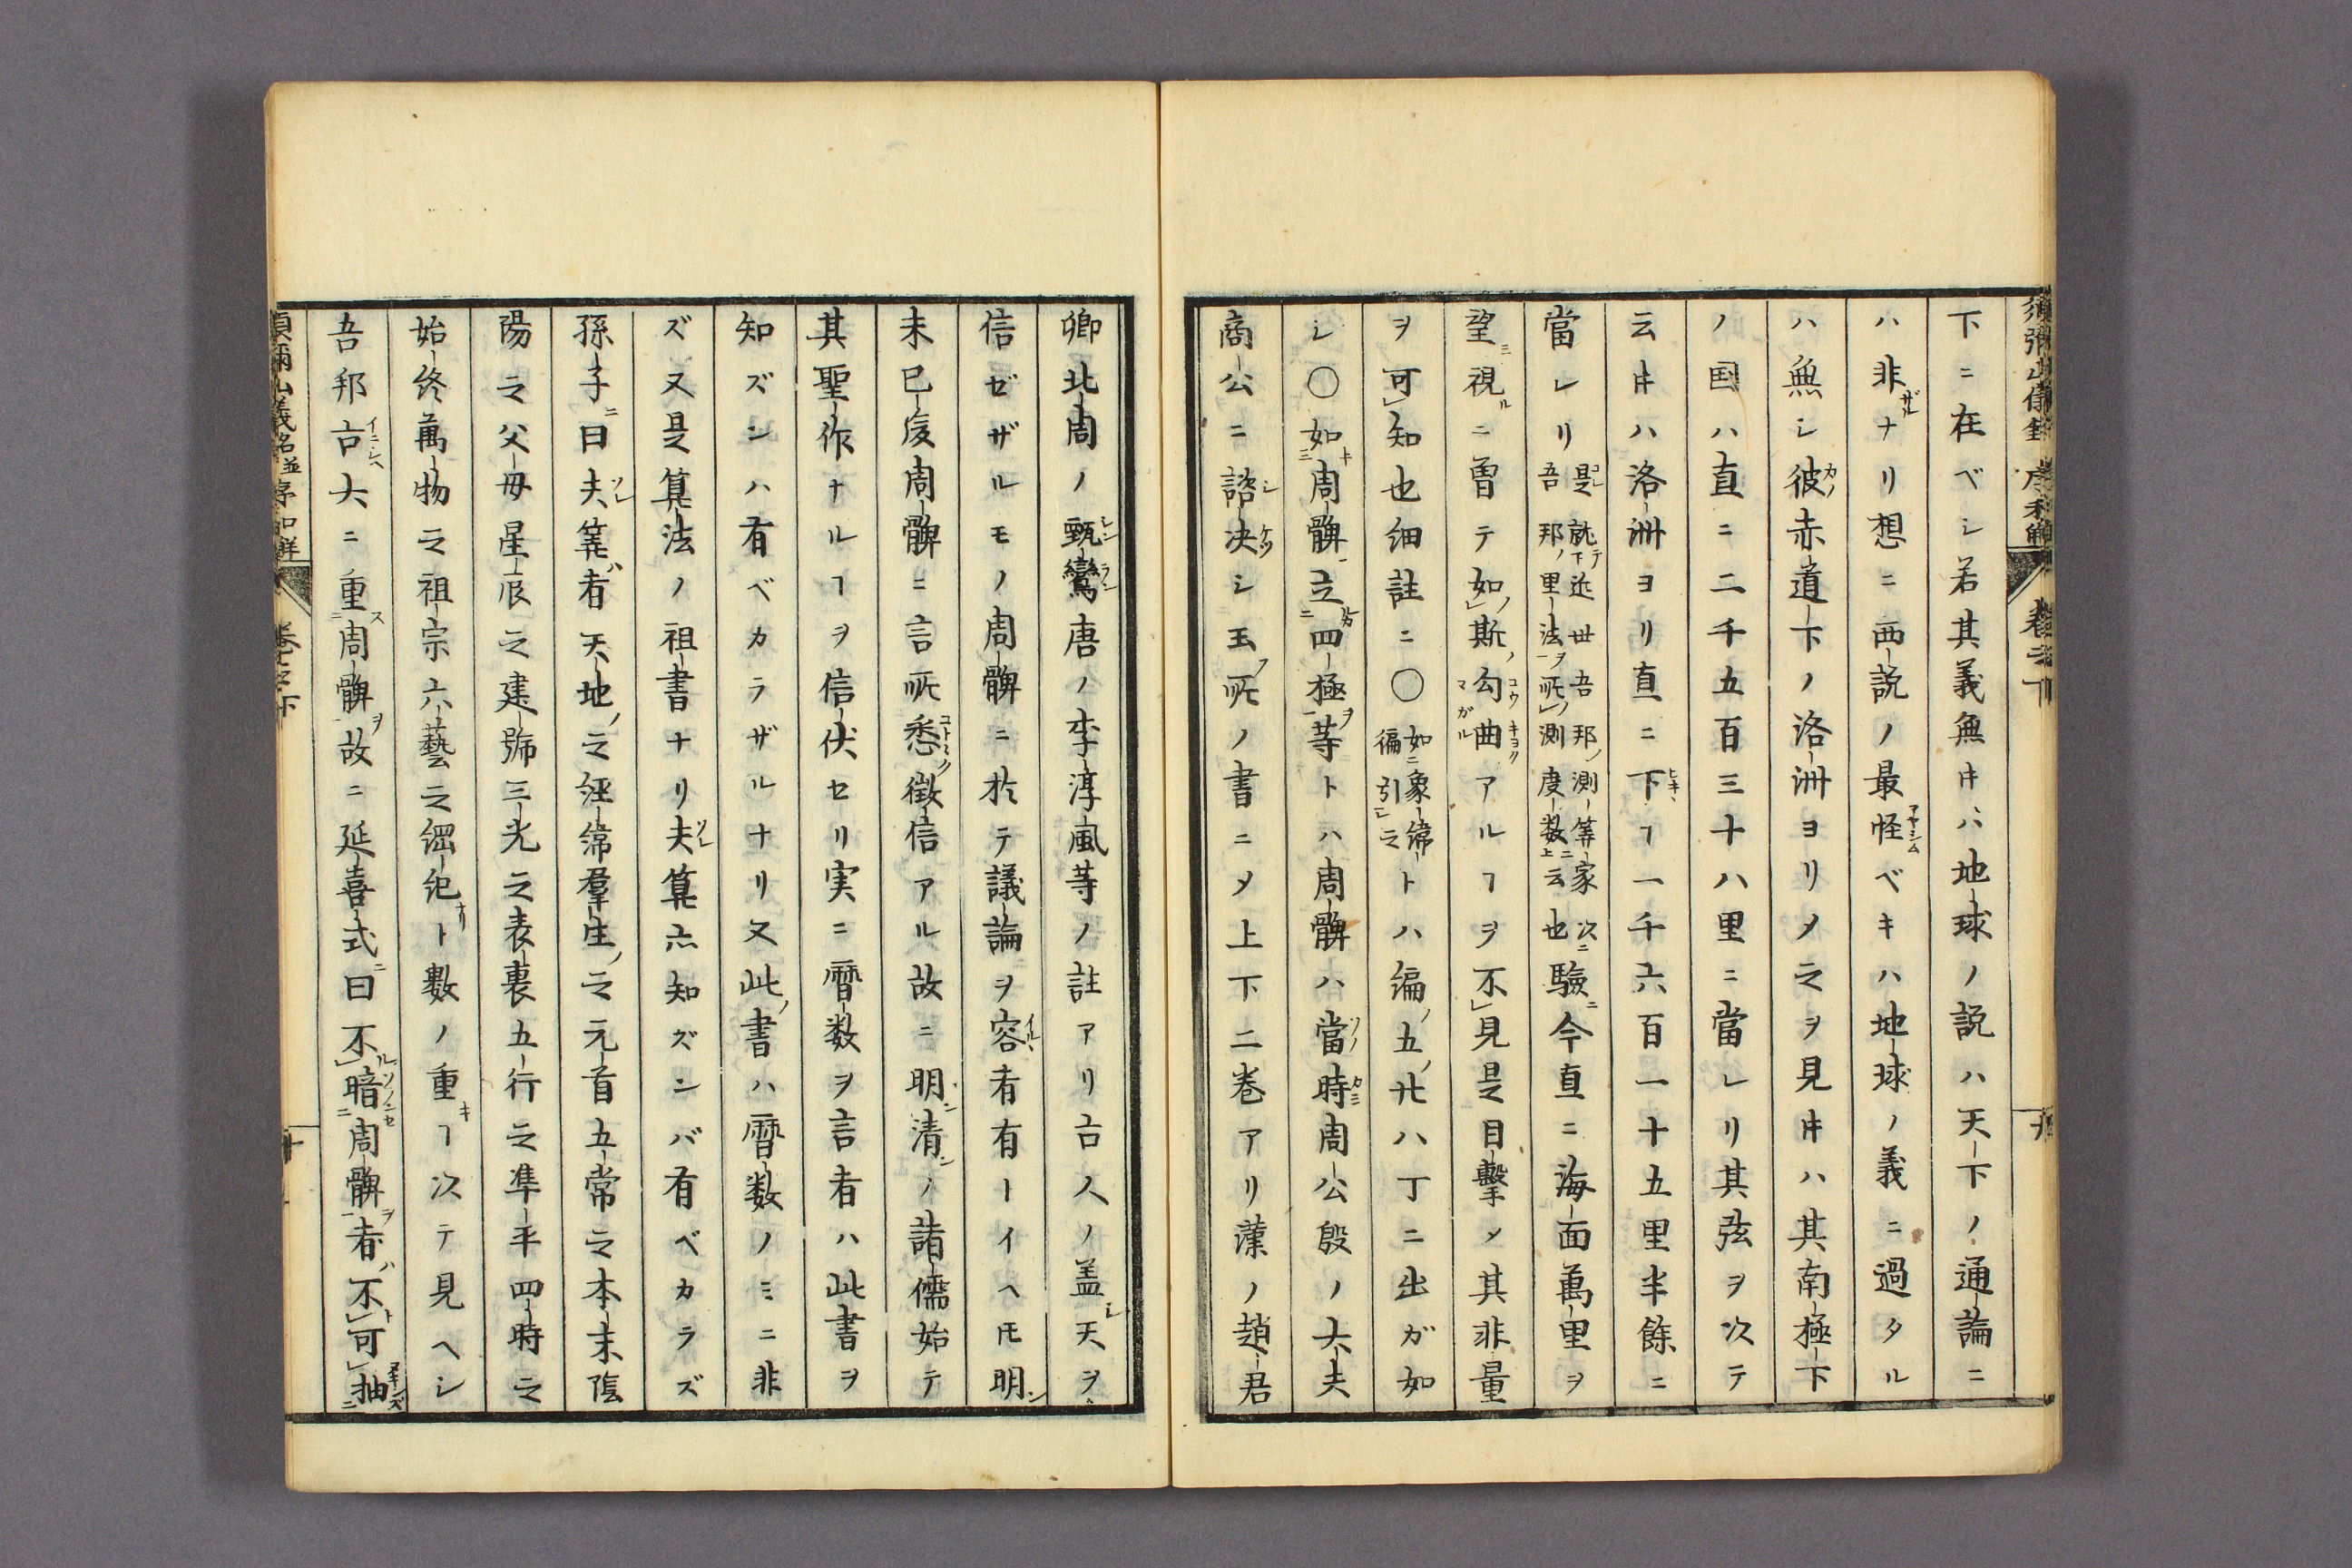 下ニ在ベシ若其義無𪜈ハ地球ノ説ハ天下ノ通論ニ
ハ非ザルナリ想ニ西説ノ最怪アヤシムベキハ地球ノ義ニ過タル
ハ無シ彼カノ赤道下ノ洛洲ヨリ〆之ヲ見𪜈ハ其南極下
ノ国ハ直ニ二千五百三十八里ニ當レリ其弦ヲ次テ
云𪜈ハ洛洲ヨリ直ニ下ヿ一千六百一十五里半餘ニ
當レリ是就テ近世吾邦ノ測筭家次ニ吾邦ノ里法ヲ所測度数ニ云也驗ニ今直ニ海面萬里ヲ
望視ルニ曽テ如斯ノ勾コウ曲キヨクマガルアルヿヲ不見是目擊〆其非量
ヲ可知也細註ニ○如象緯編ニ引之トハ編ノ五ノ廿八丁ニ出ガ如
シ○如周髀立四極ヲ等トハ周髀ハ當ソノ時カミ周公殷ノ大夫
商公ニ諮シ决ケツシ玉フ所ノ書ニ〆上下二巻アリ漢ノ趙君
卿北周ノ甄シン鸞ラン唐ノ李淳風等ノ註アリ古人ノ盖シ天ヲ
信ゼザルモノ周髀ニ於テ議論ヲ容イルヽ者有ーイヘ𪜈明ン
末已後周髀ニ言所悉コトゴトク徴信アル故ニ明ン清シンノ諸儒始テ
其聖作ナルヿヲ信伏セリ実ニ暦数ヲ言者ハ此書ヲ
知ズンハ有ベカラザルナリ又此ノ書ハ暦数ノミニ非
ズ又是筭法ノ祖書ナリ夫ソレ筭亦知ズンバ有ベカラズ
孫子ニ曰夫ソレ筭者ハ天地ノ之經緯羣生ノ之元首五常之本末陰
陽之父母星辰之建號三光之表裏五行之準平四時之
始終萬物之祖宗六藝之綱紀ナリト數ノ重キヿ次テ見ヘシ
吾邦古イニシヘ大ニ重ス周髀ヲ故ニ延喜式ニ曰不暗ルソラニセ周髀ヲ者ハ不可抽ヌキンズ